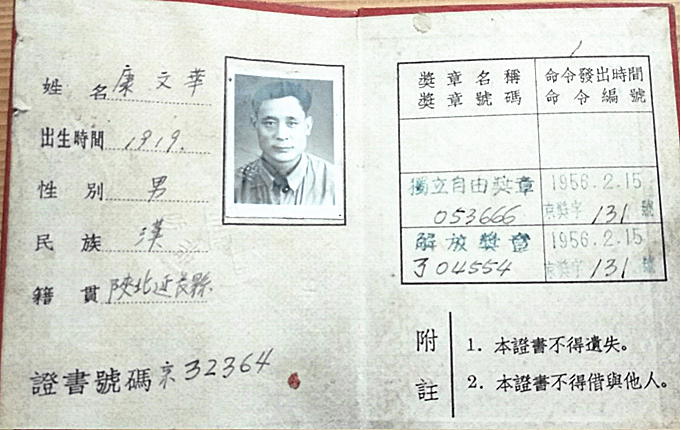 姓名 康文華
出生時間 1919.
性別 男
民族 漢
籍貫 陝北延長縣
證書號碼 京32364
獎章名稱 命令發出時間
獎章號碼 命令編號
獨立自由獎章 1956.2.15
053666 京獎字131號
解放獎章 1956.2.15
304554 京獎字131號
附註
1. 本證書不得遺失。
2. 本證書不得借與他人。